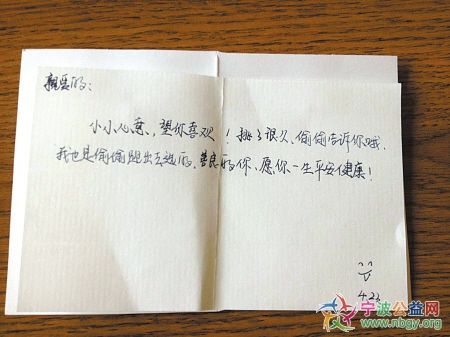 亲爱的：
小小心意，望你喜欢！挑了很久、偷偷告诉你哦，
我也是偷偷跑出去的，善良的你、愿你一生平安健康！
4.22
宁波公益网
www.nbgy.org